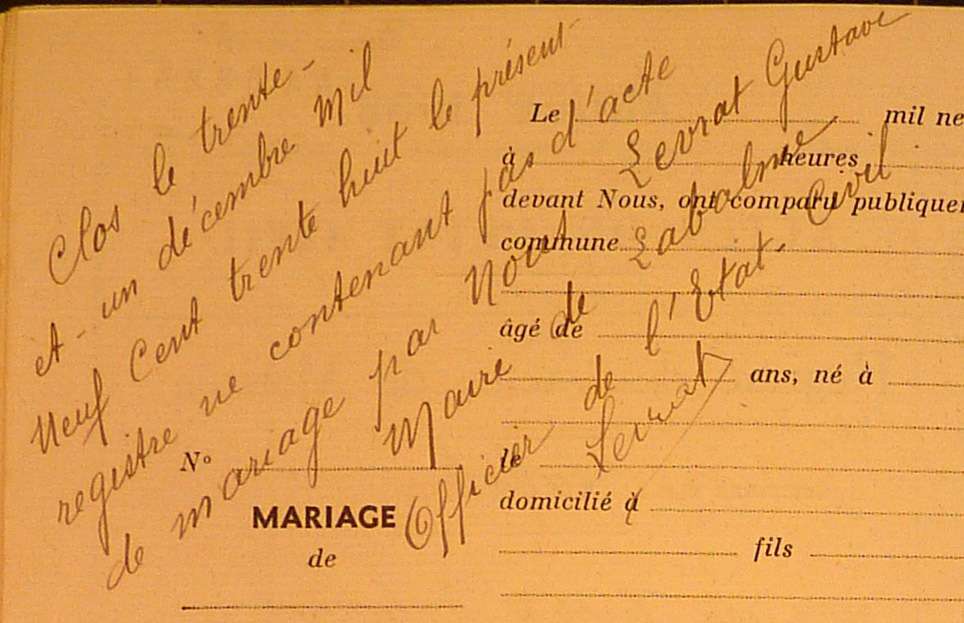 Clos le trente-
et-un décembre mil
Neuf Cent trente huit le présent
registre ne contenant pas d'acte
de mariage par Nous Levrat Gustave
Maire de Labalme
Officier de l'Etat-Civil
Levrat
Le mil ne
à heures
devant Nous, ont comparu publique
commune
âgé de
ans, né à
de
domicilié à
fils
N°
MARIAGE
de